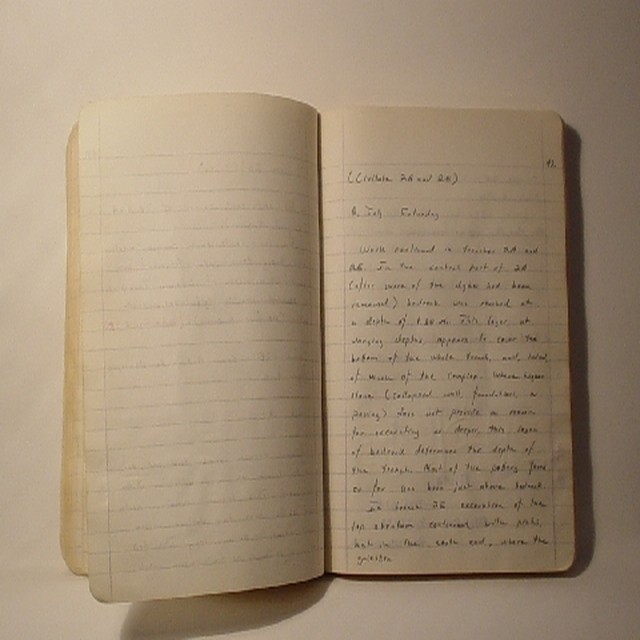 (Civitate 2A and 2B)
8. July Saturday
Work continued in trenches 2A and
2B. In the central part of 2A
(after some of the stones had been
removed) bedrock was reached at
a depth of 1.80 m. This layer, at
varying depths, appears to cover the
bottom of the whole trench, and, indeed
of much of the complex. Where higher
(collapsed wall, foundations, or
paving) does not provide a reason
for excavating deeper this layer
of bedrock determines the depth of
the trench. Most of the pottery found
so far has been just above bedrock.
In trench 2B excavation of the
top stratum continued with picks,
but in the south end, where the